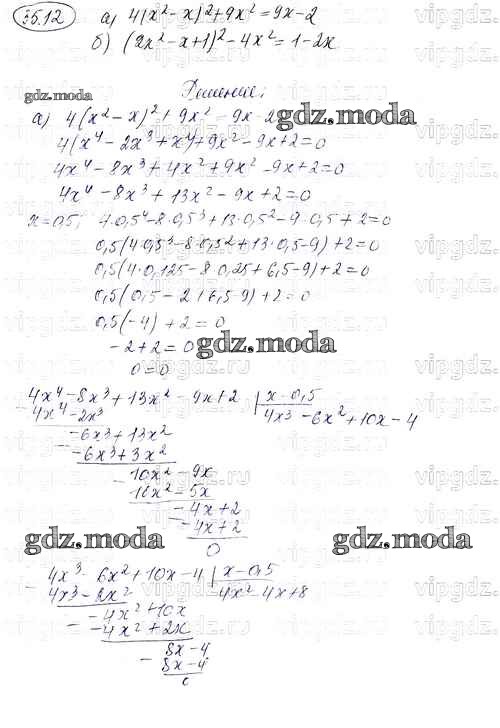 35.12 а) 4(x²-x)²+9x²=9x-2
б) (2x²-x+1)²-4x²=1-2x
Решение:
gdz.moda
а) 4(x²-x)²+9x² 9x 2
gdz.moda
4(x⁴-2x³+x⁴)+9x²-9x+2=0
4x⁴-8x³+4x²+9x²-9x+2=0
4x⁴-8x³+13x²-9x+2=0
x=0,5; 4·0,5⁴-8·0,5³+13·0,5²-9·0,5+2=0
0,5(4·0,5³-8·0,5²+13·0,5-9)+2=0
0,5(4·0,125-8·0,25+6,5-9)+2=0
0,5(0,5-2+6,5-9)+2=0
0,5(-4)+2=0
-2+2=0
gdz.moda
0=0
4x⁴-8x³+13x²-9x+2 | x-0,5
4x⁴-2x³ 4x³-6x²+10x-4
-6x³+13x²
-6x³+3x²
10x²-9x
10x²-5x
-4x+2
-4x+2
0
gdz.moda gdz.moda
4x³-6x²+10x-4 | x-0,5
4x³-2x² 4x²-4x+8
-4x²+10x
-4x²+2x
8x-4
8x-4
0
vipgdz.ru